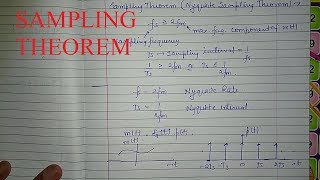 SAMPLING
THEOREM
Sampling Theorem (Nyquist Sampling Theorem) :-
fs ≥ 2fm
max freq. component of x(t)
sampling frequency
Ts → Sampling interval = 1/fs
1/Ts ≥ 2fm or Ts ≤ 1/2fm
f = 2fm Nyquist Rate
Ts = 1/2fm Nyquist interval
p(t)
-2Ts -Ts 0 Ts 2Ts